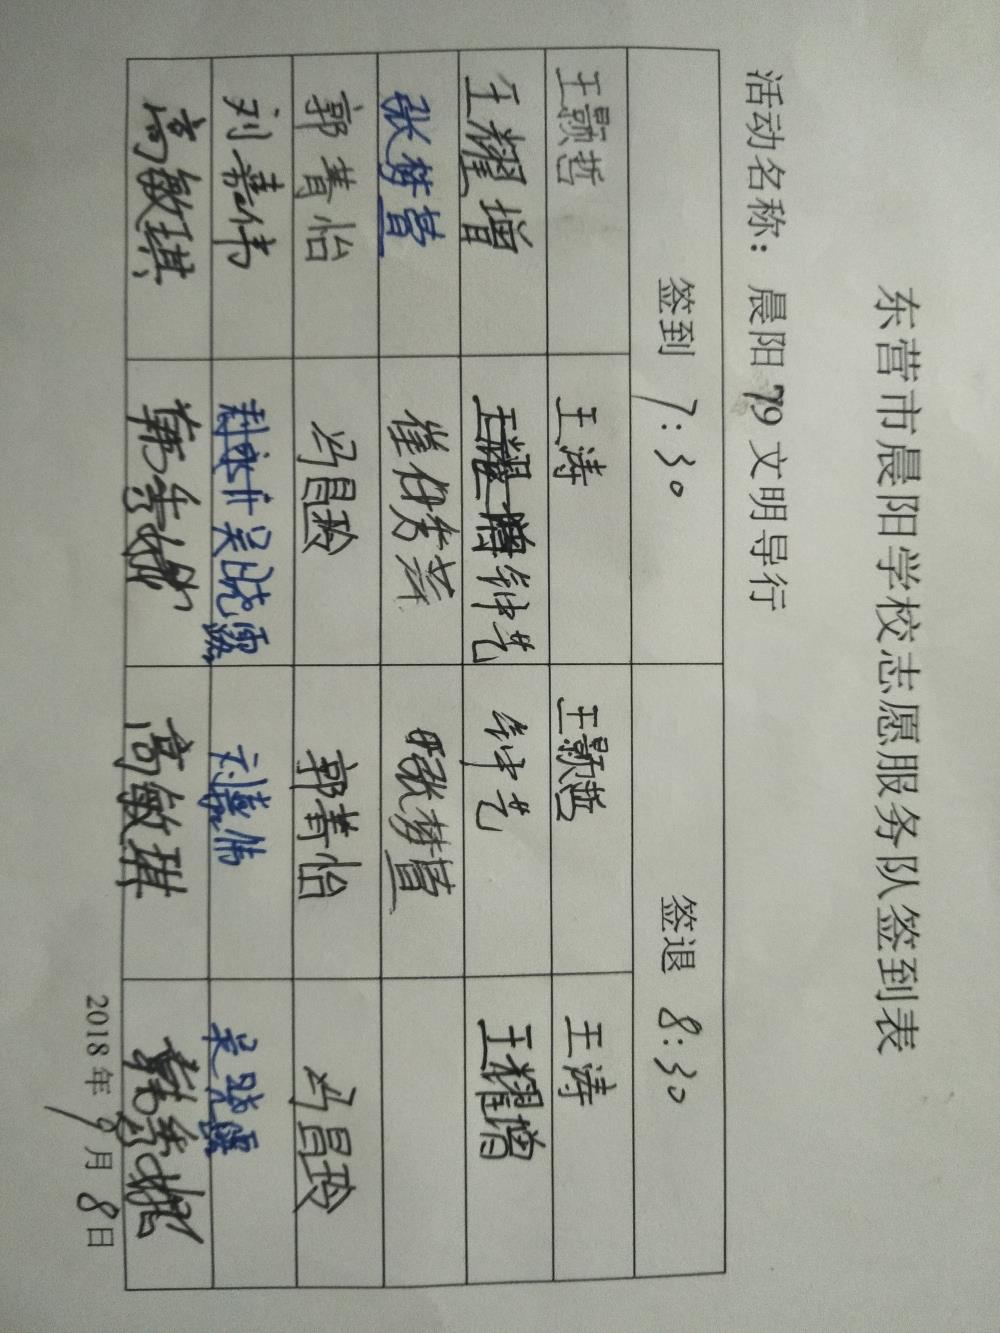 东营市晨阳学校志愿服务队签到表
活动名称：晨阳 79 文明导行
签到 7:30 签退 8:30
王颢哲 王涛 王颢哲 王涛
王耀增 钟艺 钟艺 王耀增
张梦萱 崔俊萍 张梦萱
郭菁怡 冯昌玲 郭菁怡 冯昌玲
刘嘉伟 吴晓露 刘嘉伟 吴晓露
高敏琪 韩秀娜 高敏琪 韩秀娜
2018 年 9 月 8 日